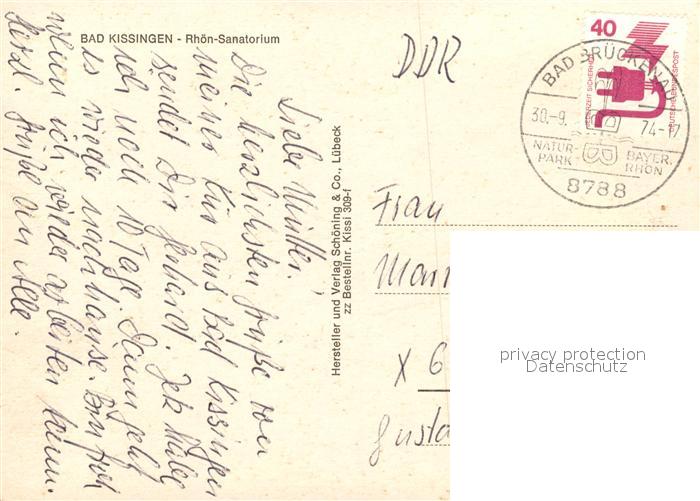 BAD KISSINGEN - Rhön-Sanatorium
Liebe Mutter!
Die herzlichsten Grüße von
meiner Kur aus Bad Kissingen
sendet Dir Gerhard. Ich
noch 10 Tage. Dann geht
es wieder nach hause. Bin froh
wenn ich wieder arbeiten kann.
Herzl. Grüße an Alle.
Hersteller und Verlag Schöning & Co., Lübeck
zz Bestellnr. Kissi 309-f
DDR
40
JEDERZEIT SICHERHEIT
DEUTSCHE BUNDESPOST
BAD BRÜCKENAU
30.-9. 74-17
NATUR-
PARK
BAYER.
RHÖN
8788
Frau
X 6
privacy protection
Datenschutz